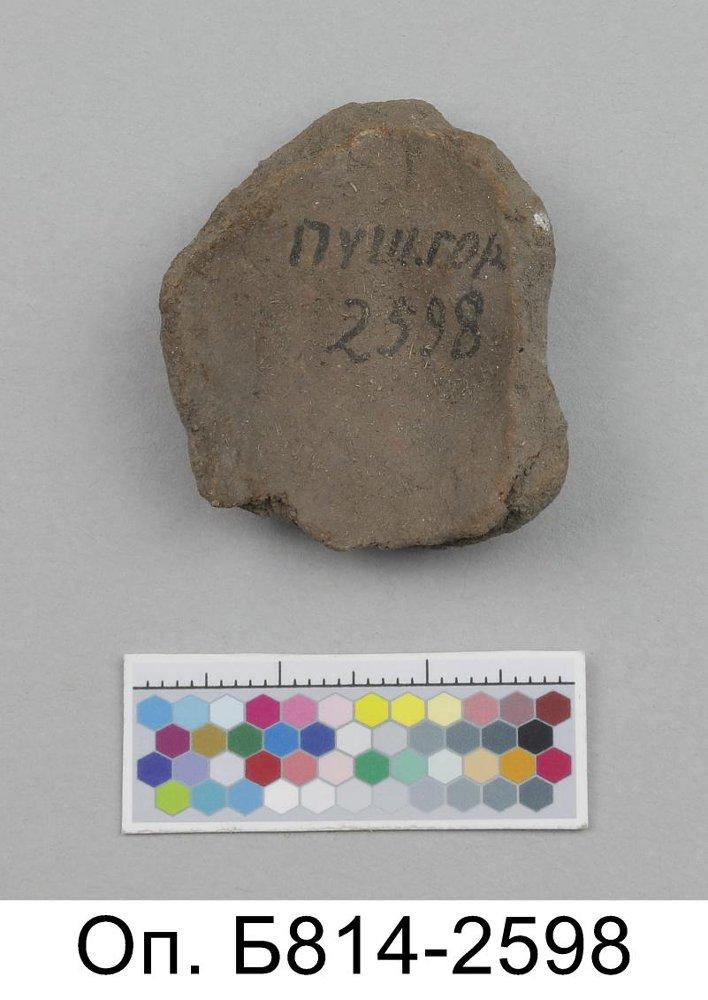 ПУШ.ГОР
2598
Оп. Б814-2598